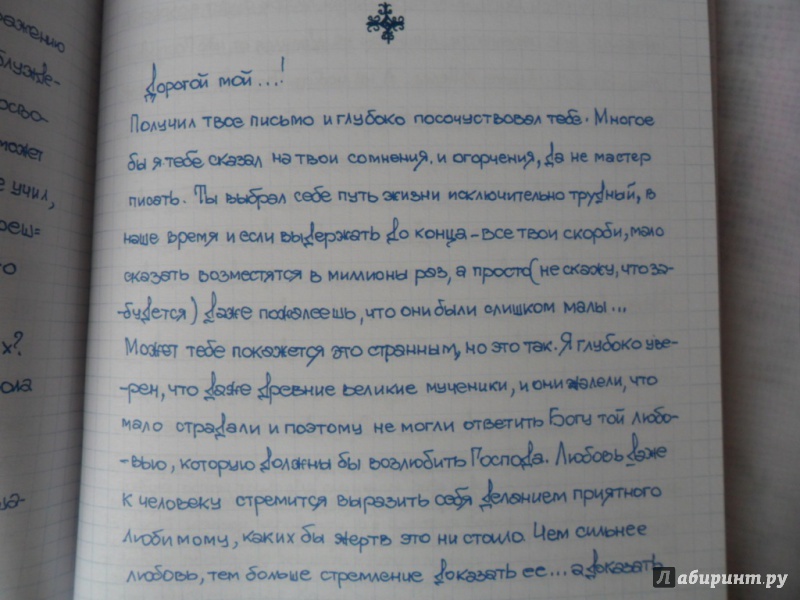 ражению
блужде-
осво-
может
е учил,
реш=
го
х?
ола
Дорогой мой...!
Получил твое письмо и глубоко посочуствовал тебе. Многое
бы я тебе сказал на твои сомнения и огорчения, да не мастер
писать. Ты выбрал себе путь жизни исключительно трудный, в
наше время и если выдержать до конца - все твои скорби, мало
сказать возместятся в миллионы раз, а просто (не скажу, что за-
-будется) даже пожалеешь, что они были слишком малы...
Может тебе покажется это странным, но это так. Я глубоко уве-
-рен, что даже древние великие мученики, и они жалели, что
мало страдали и поэтому не могли ответить Богу той любо-
-вью, которую должны бы возлюбить Господа. Любовь даже
к человеку стремится выразить себя деланием приятного
любимому, каких бы жертв это ни стоило. Чем сильнее
любовь, тем больше стремление доказать ее... а доказать
Лабиринт.ру